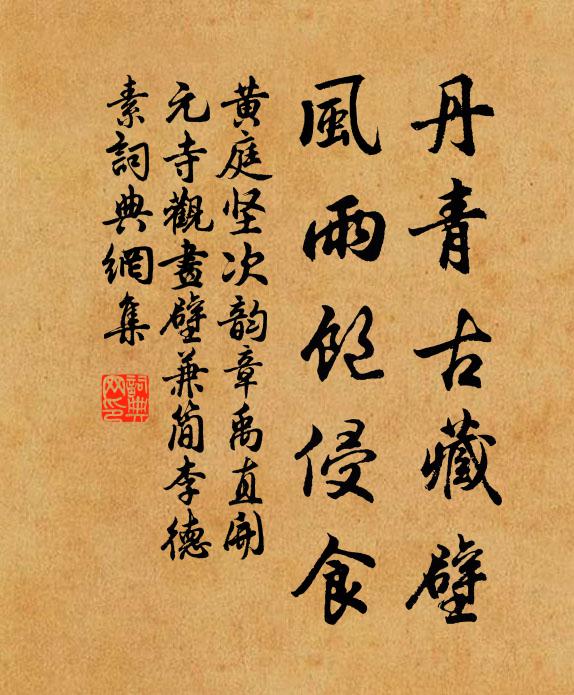 丹青古藏壁
風雨飽侵食
黄庭坚次韵章禹直開
元寺觀畫壁兼简李德
素詞典網集
詞典網印